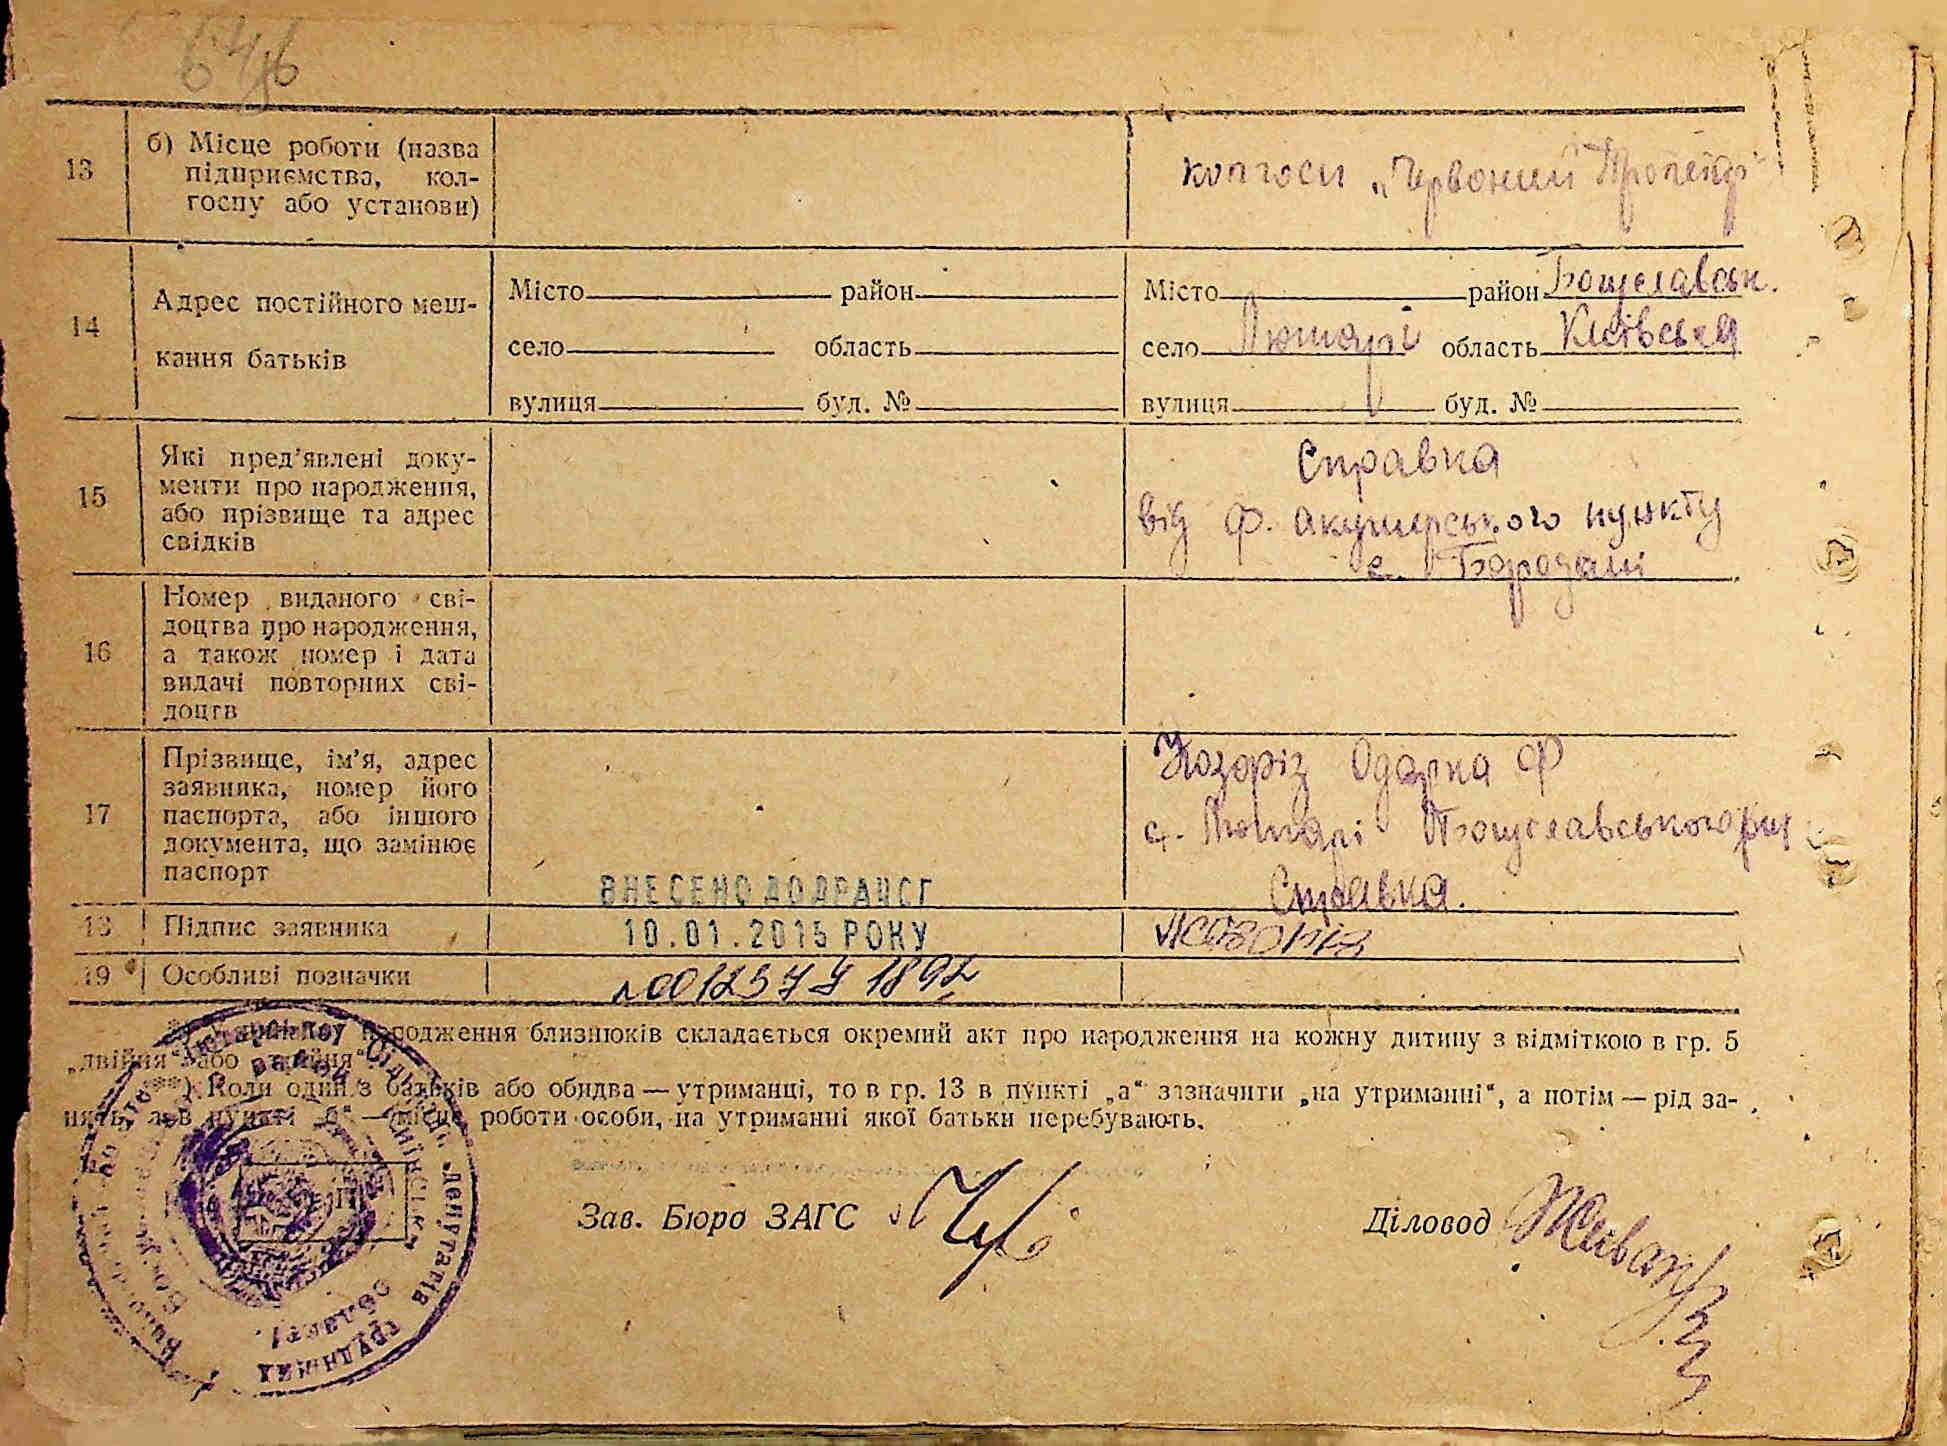 13
б) Місце роботи (назва
підприємства, кол-
госпу або установи)
колгосп „Червоний
14
Адрес постійного меш-
кання батьків
Місто район
село область
вулиця буд. №
Місто район Богуславськ.
село Дешки область Київська
вулиця буд. №
15
Які пред'явлені доку-
менти про народження,
або прізвище та адрес
свідків
Справка
від ф. акушерського пункту
с. Бородані
16
Номер виданого сві-
доцтва про народження,
а також номер і дата
видачі повторних сві-
доцтв
17
Прізвище, ім'я, адрес
заявника, номер його
паспорта, або іншого
документа, що замінює
паспорт
Козоріз Одарка Ф
с. Богуславського р-ну
Справка.
ВНЕСЕНО ДО ДРАЦСГ
18
Підпис заявника
10.01.2015 РОКУ
19
Особливі позначки
народження близнюків складається окремий акт про народження на кожну дитину з відміткою в гр. 5
„двійня“ або „трійня“
Коли один з батьків або обидва — утриманці, то в гр. 13 в пункті „а“ зазначити „на утриманні“, а потім — рід за-
нять, а в пункті „б“ — місце роботи особи, на утриманні якої батьки перебувають.
депутатів
трудящих
області
Зав. Бюро ЗАГС
Діловод